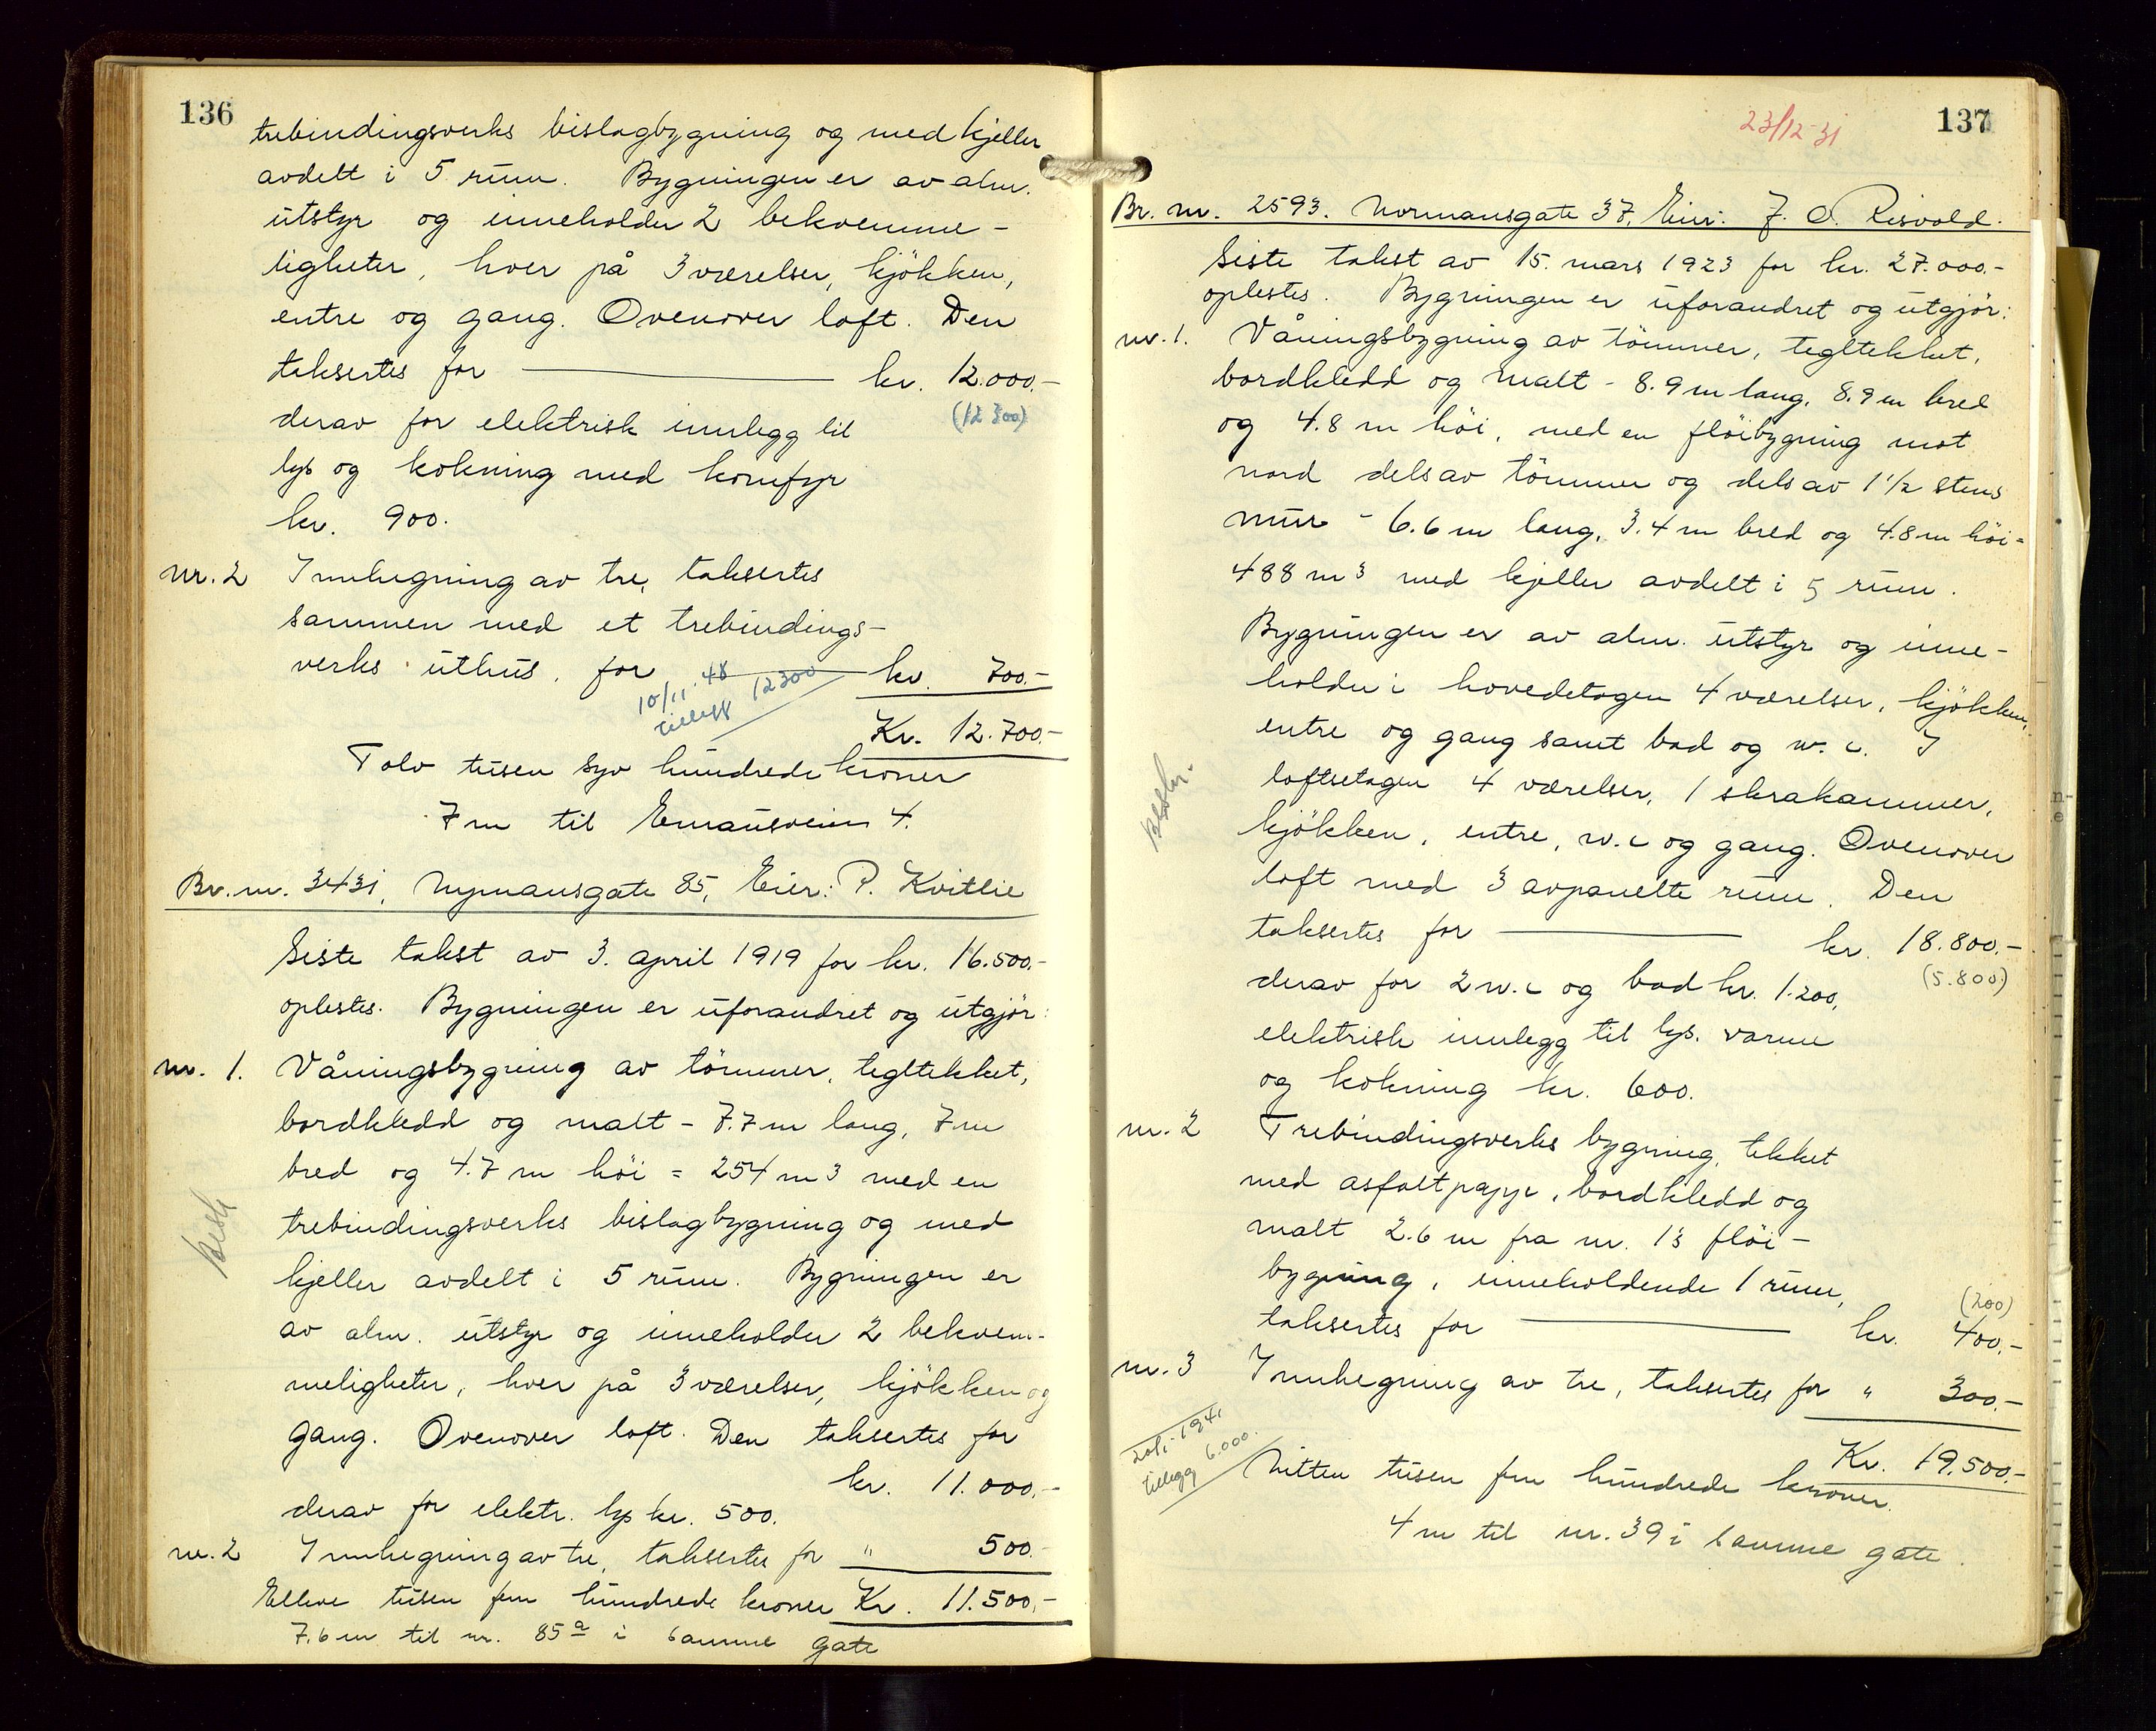 136
trebindingsverks bislagbygning og med kjeller
avdelt i 5 rum. Bygningen er av alm.
utstyr og inneholder 2 bekvemme-
ligheter, hver på 3 værelser, kjökken,
entre og gang. Ovenover loft. Den
taksertes for kr. 12.000.-
(12 300)
derav for elektrisk innlegg til
lys og kokning med komfyr
kr. 900.
nr. 2 Innhegning av tre, taksertes
sammen med et trebindings-
verks uthus, for kr. 700.-
10/11 48
tillegg 12300
Kr. 12.700.-
Tolv tusen syv hundrede kroner
7 m til Emausveien 4.
Br. nr. 3431, Nymansgate 85, Eier: P. Kvitlie
Siste takst av 3. april 1919 for kr. 16.500.-
oplestes. Bygningen er uforandret og utgjör:
nr. 1. Våningsbygning av tömmer, tegltekket,
bordkledd og malt - 7.7 m lang, 7 m
bred og 4.7 m höi = 254 m3 med en
trebindingsverks bislagbygning og med
kjeller avdelt i 5 rum. Bygningen er
av alm. utstyr og inneholder 2 bekvem-
meligheter, hver på 3 værelser, kjökken og
gang. Ovenover loft. Den taksertes for
kr. 11.000.-
derav for elektr. lys kr. 500.
nr. 2 Innhegning av tre, taksertes for " 500.-
Elleve tusen fem hundrede kroner Kr. 11.500,-
7.6 m til nr. 85a i samme gate
137
23/12-31
Br. nr. 2593. Normansgate 37, Eier: J. O. Risvold.
Siste takst av 15. mars 1923 for kr. 27.000.-
oplestes. Bygningen er uforandret og utgjör:
nr. 1. Våningsbygning av tömmer, tegltekket,
bordkledd og malt - 8.9 m lang, 8.9 m bred
og 4.8 m höi, med en flöibygning mot
nord dels av tömmer og dels av 1 1/2 stens
mur - 6.6 m lang, 3.4 m bred og 4.8 m höi =
488 m3 med kjeller avdelt i 5 rum.
Bygningen er av alm. utstyr og inne-
holder i hovedetagen 4 værelser, kjökken,
entre og gang samt bad og w. c. I
loftsetagen 4 værelser, 1 skrakammer,
kjökken, entre, w. c og gang. Ovenover
loft med 3 avpanelte rum. Den
taksertes for kr. 18.800.-
(5.800)
derav for 2 w. c og bad kr. 1.200,
elektrisk innlegg til lys, varme
og kokning kr. 600.
nr. 2 Trebindingsverks bygning, tekket
med asfaltpapp, bordkledd og
malt 2.6 m fra nr. 1's flöi-
bygning, inneholdende 1 rum,
(200)
taksertes for kr. 400.-
nr. 3 Innhegning av tre, taksertes for " 300.-
1941
tillegg 6.000.
Kr. 19.500.-
Nitten tusen fem hundrede kroner.
4 m til nr. 39 i samme gate.